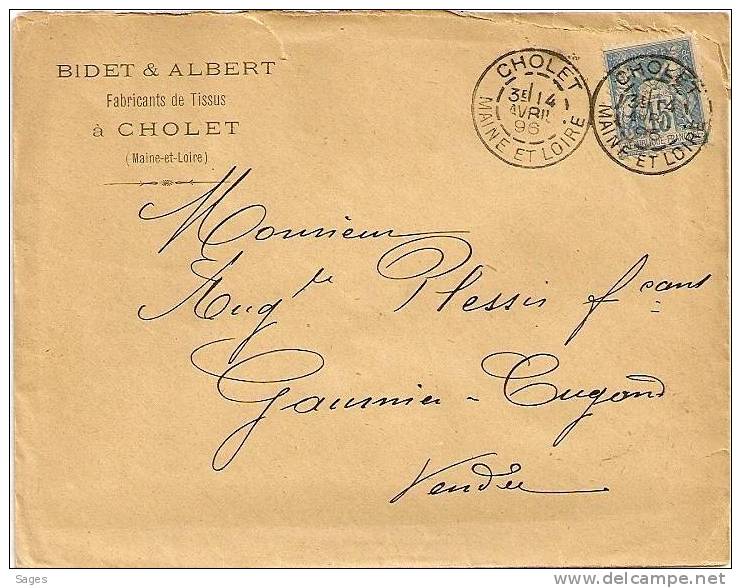 BIDET & ALBERT
Fabricants de Tissus
à CHOLET
(Maine-et-Loire)
CHOLET
3E 14
AVRIL
96
MAINE ET LOIRE
CHOLET
3E 14
AVRIL
96
MAINE ET LOIRE
Monsieur
Aug le Plessis fcant
Gaumier - Cugand
Vendée
Sages
delcampe.net